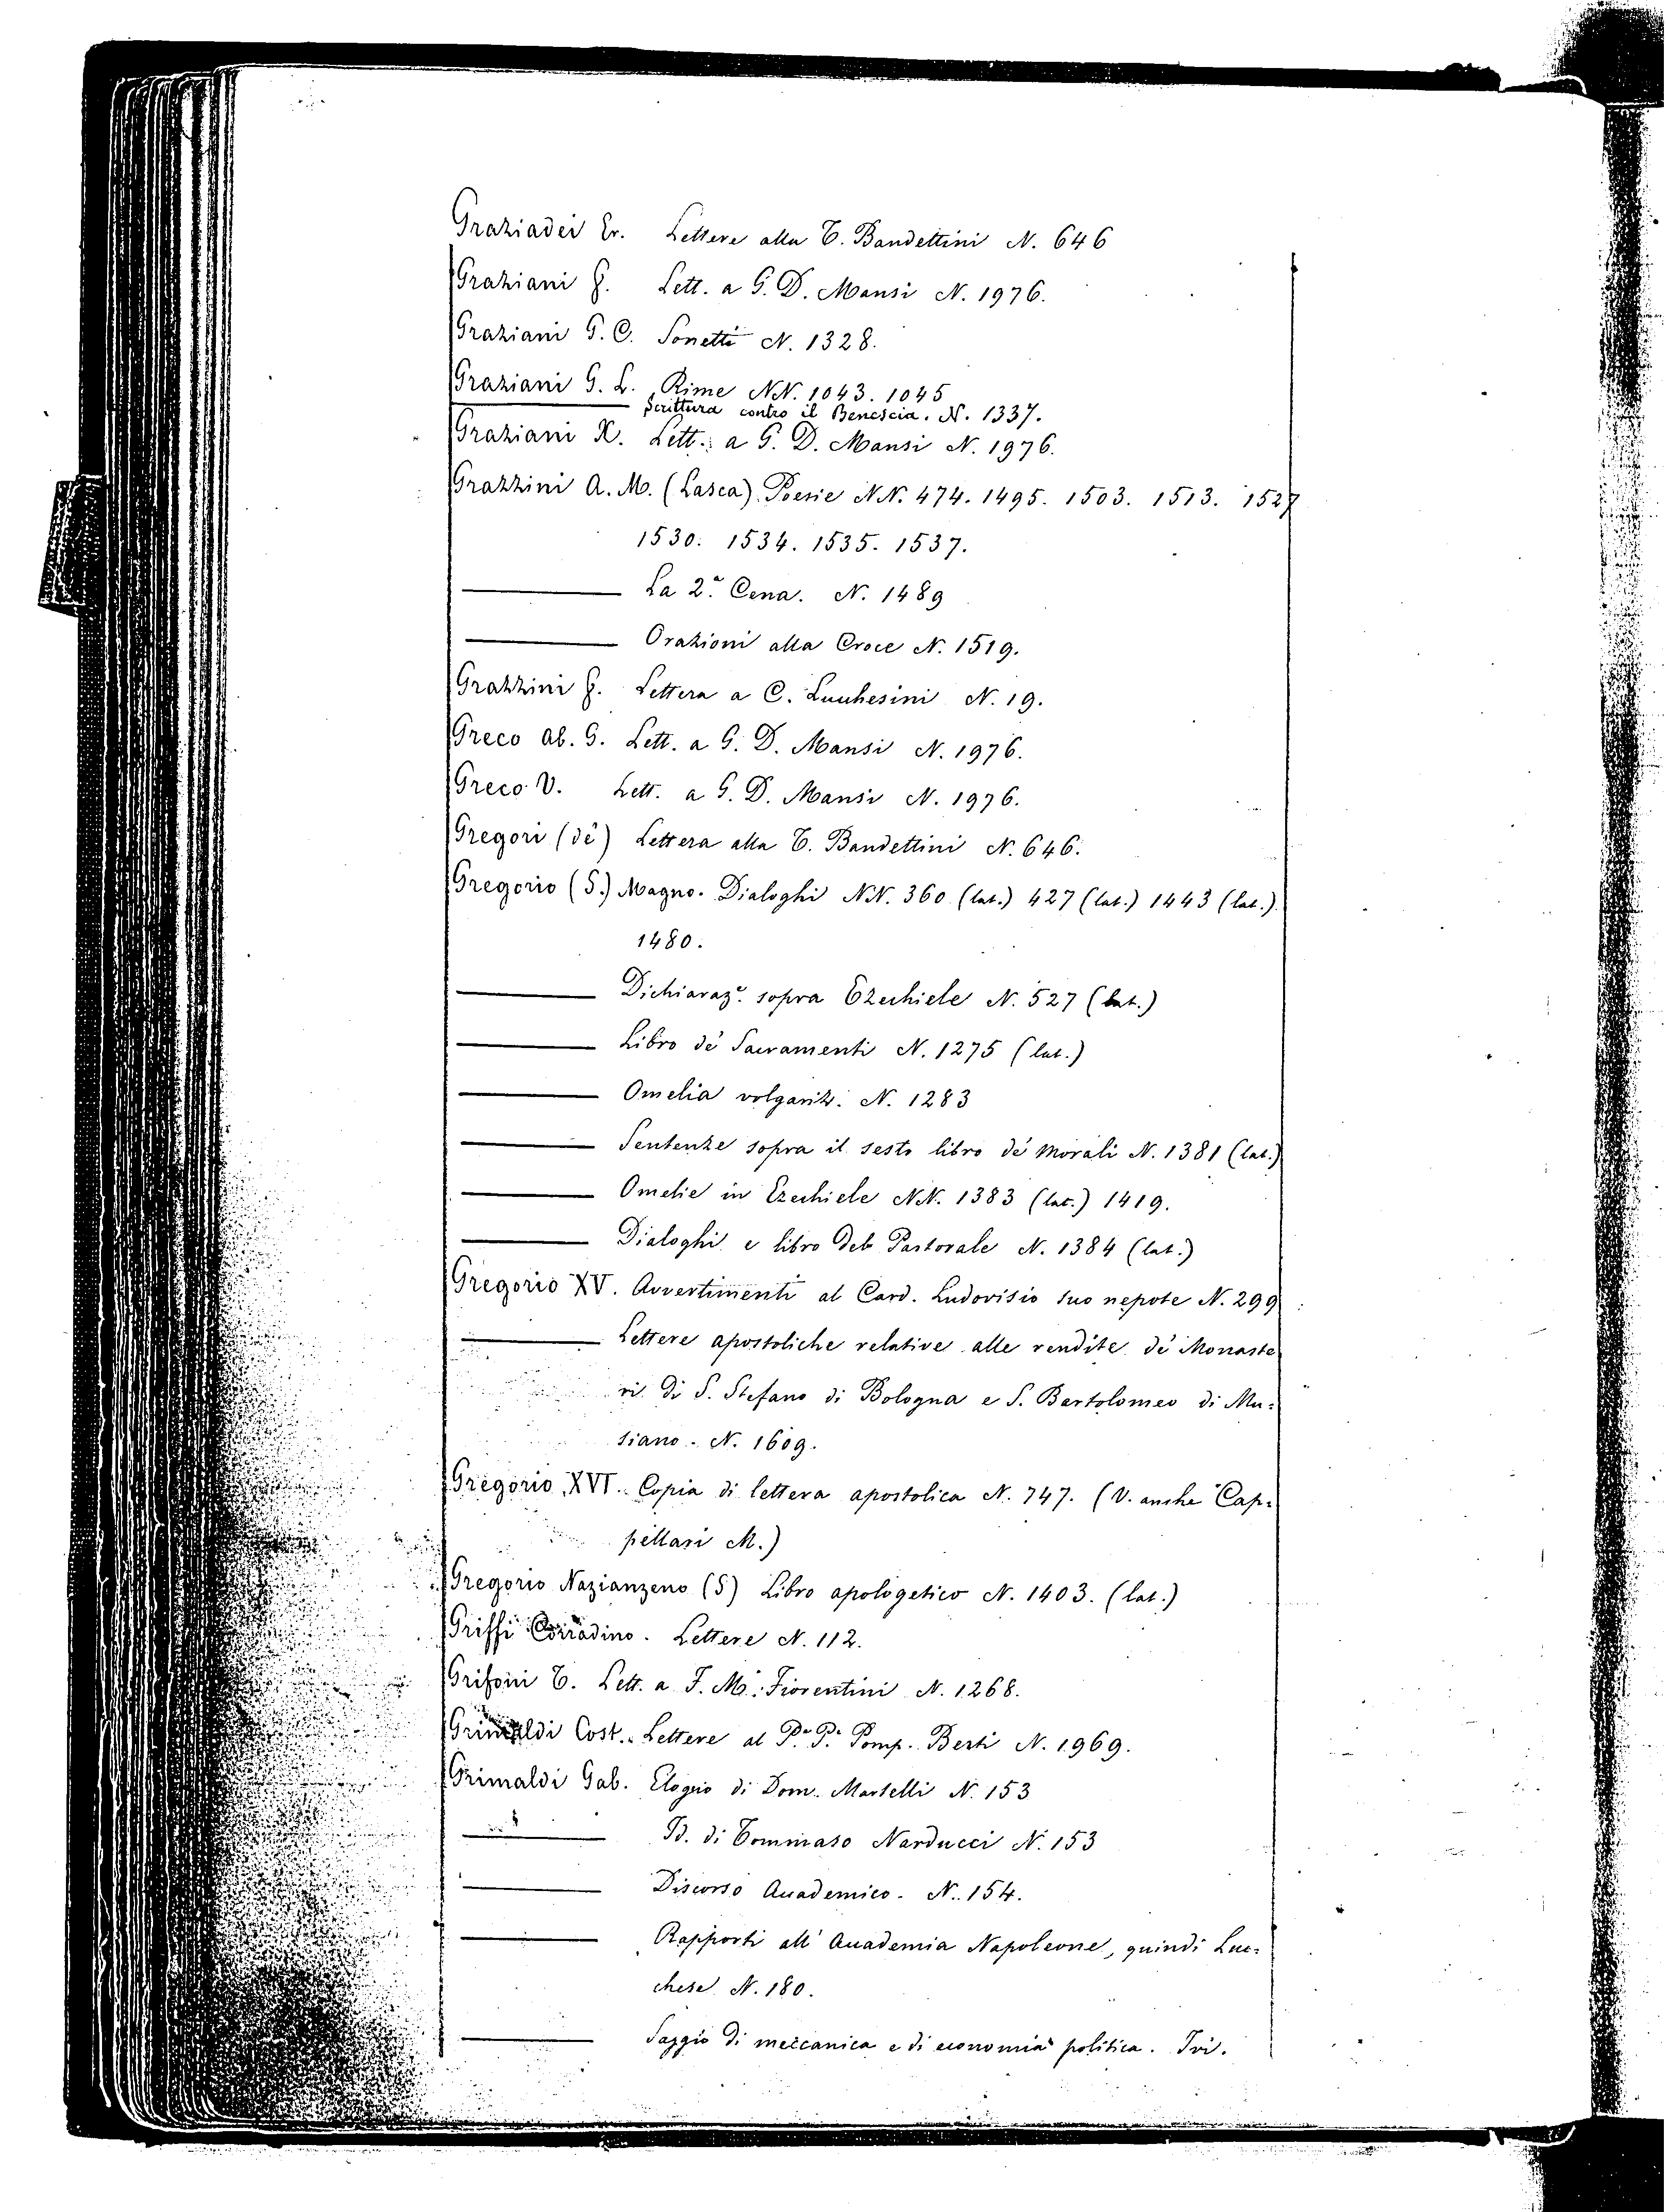 Graziadei Er. Lettere alla T. Bandettini N. 646
Graziani G. Lett. a G. D. Mansi N. 1976.
Graziani G. C. Sonetti N. 1328.
Graziani G. L. Rime NN. 1043. 1045
Scrittura contro il Benescia. N. 1337.
Graziani X. Lett. a G. D. Mansi N. 1976.
Grazzini A. M. (Lasca) Poesie NN. 474. 1495. 1503. 1513. 1527
1530. 1534. 1535. 1537.
La 2.ª Cena. N. 1489
Orazioni alla Croce N. 1519.
Grazzini G. Lettera a C. Lucchesini N. 19.
Greco ab. G. Lett. a G. D. Mansi N. 1976.
Greco V. Lett. a G. D. Mansi N. 1976.
Gregori (de') Lettera alla T. Bandettini N. 646.
Gregorio (S.) Magno. Dialoghi NN. 360 (lat.) 427 (lat.) 1443 (lat.)
1480.
Dichiaraz.e sopra Ezechiele N. 527 (lat.)
Libro de' Sacramenti N. 1275 (lat.)
Omelia volgariz. N. 1283
Sentenze sopra il sesto libro de' morali N. 1381 (lat.)
Omelie in Ezechiele NN. 1383 (lat.) 1419.
Dialoghi e libro del Pastorale N. 1384 (lat.)
Gregorio XV. Avvertimenti al Card. Ludovisio suo nepote N. 299
Lettere apostoliche relative alle rendite de' Monaste
ri di S. Stefano di Bologna e S. Bartolomeo di Mu=
siano. N. 1609.
Gregorio XVI. Copia di lettera apostolica N. 747. (V. anche Cap=
pellari M.)
Gregorio Nazianzeno (S) Libro apologetico N. 1403. (lat.)
Griffi Corradino. Lettere N. 112.
Grifoni T. Lett. a F. M. Fiorentini N. 1268.
Grimaldi Cost. Lettere al P.re P. Pomp. Berti N. 1969.
Grimaldi Gab. Elogio di Dom. Martelli N. 153
Id. di Tommaso Narducci N. 153
Discorso Accademico. N. 154.
Rapporti all' Accademia Napoleone, quindi Luc=
chese N. 180.
Saggio di meccanica e di economia politica. Ivi.